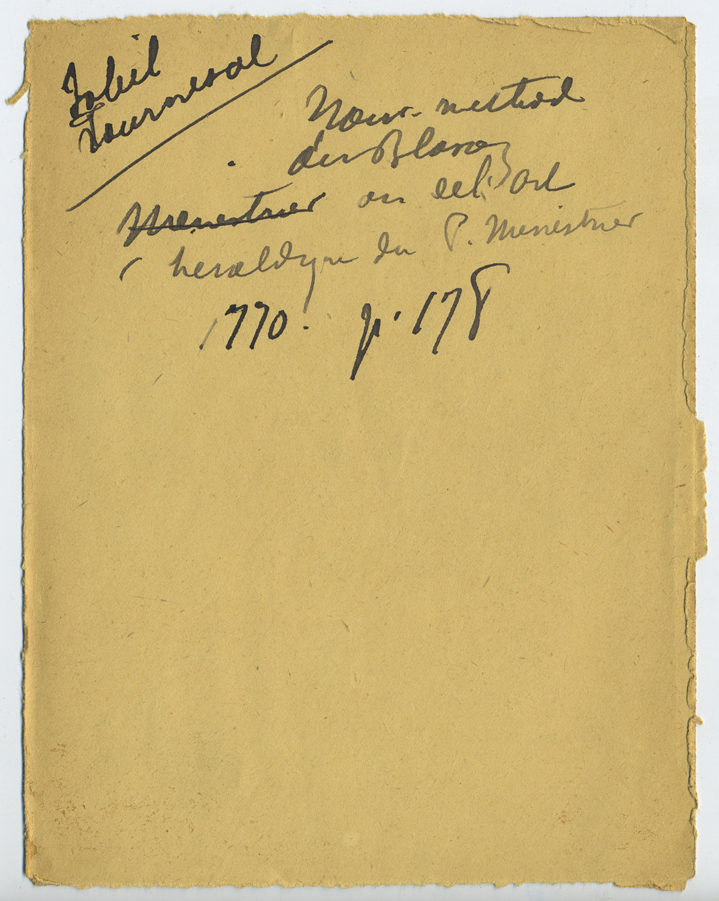 Soleil
Tournesol
Nouv. method
du Blason
Menestrier ou de l'art
heraldique du P. Menestrier
1770. p. 178